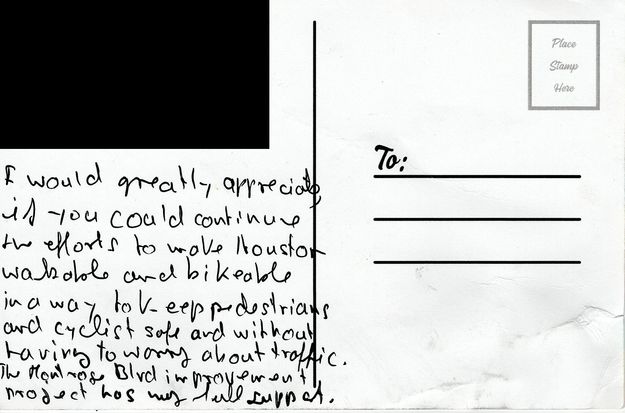 I would greatly appreciate,
if you could continue
the efforts to make Houston
walkable and bikeable
in a way to keep pedestrians
and cyclist safe and without
having to worry about traffic.
The Montrose Blvd improvement
project has my full support.
Place
Stamp
Here
To: